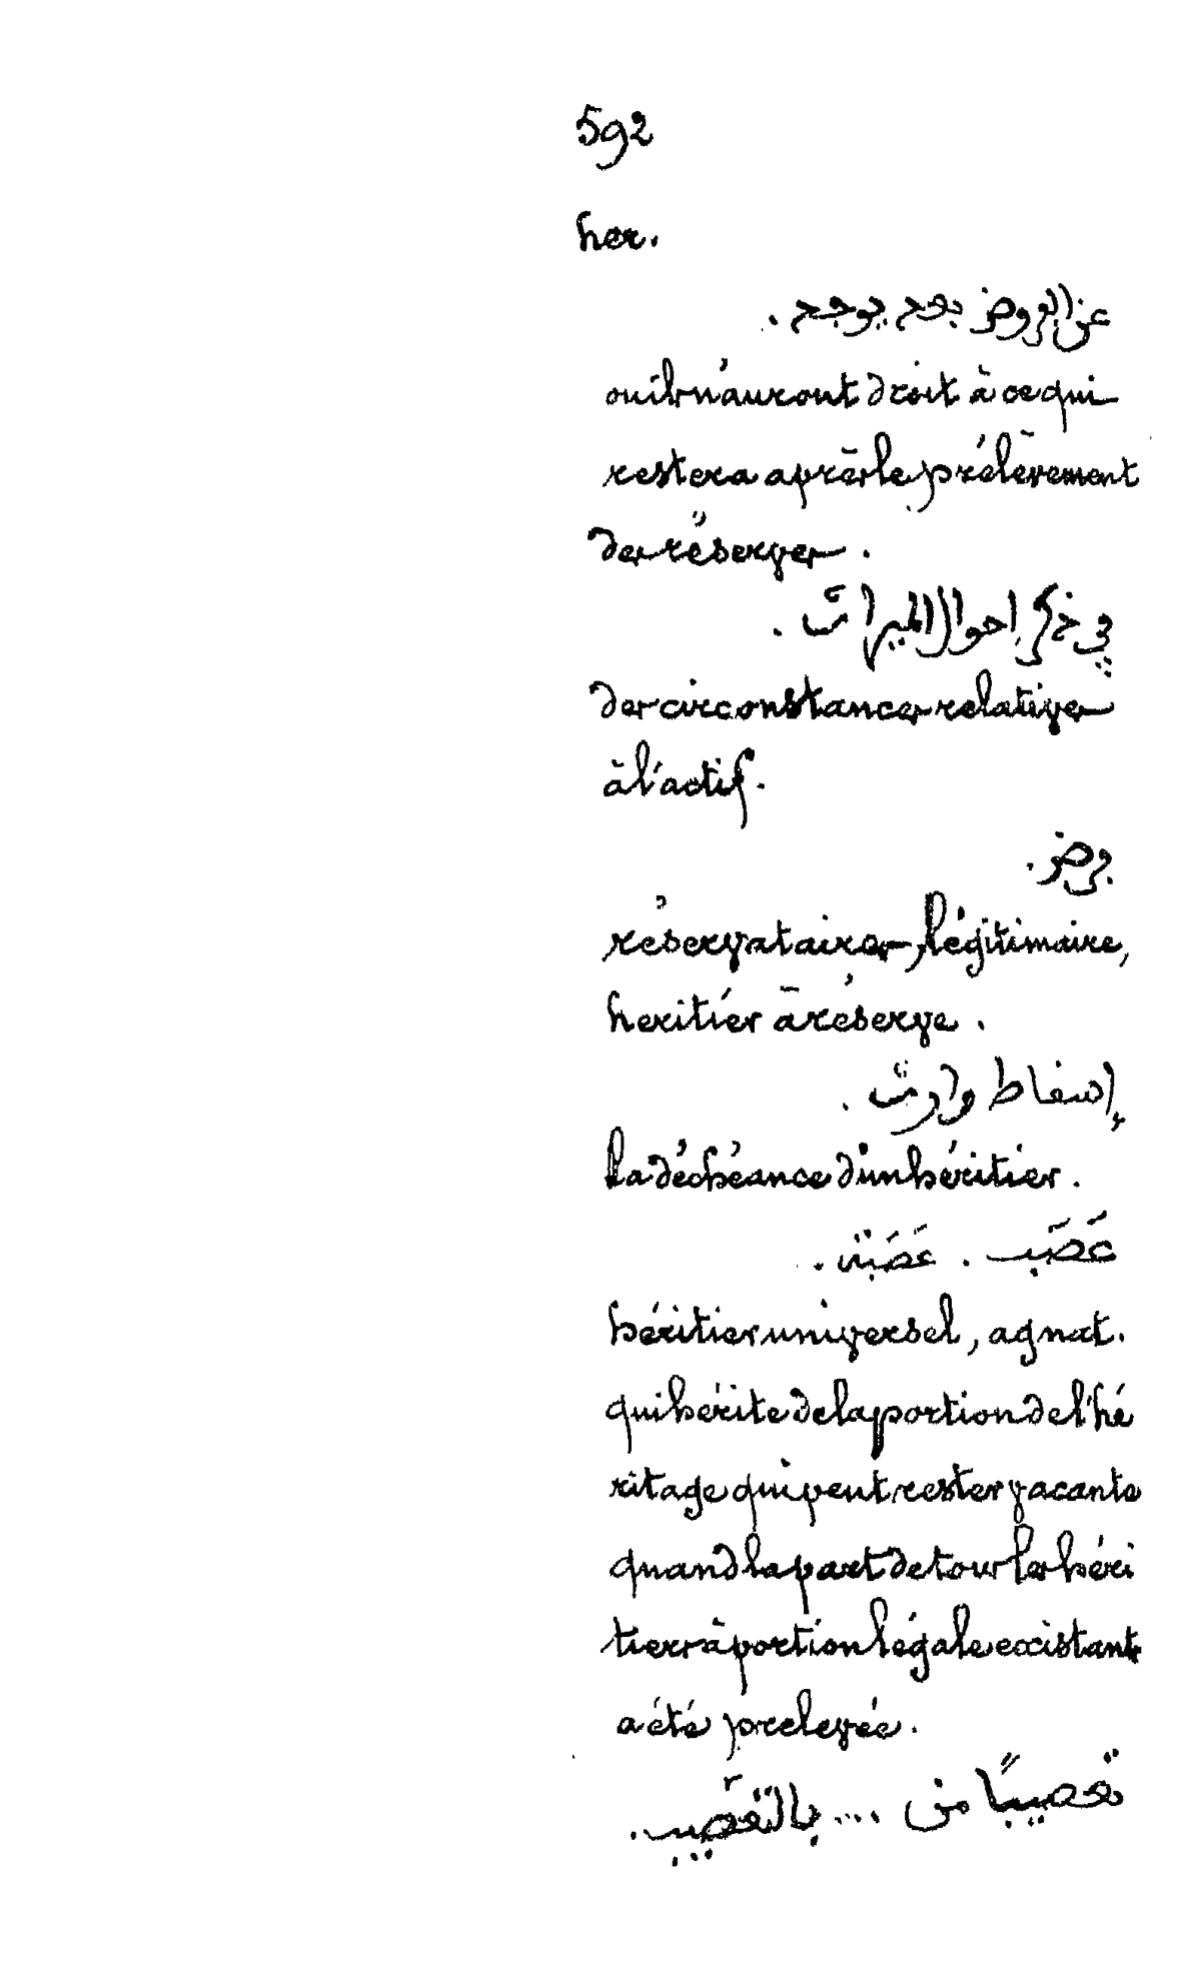 592
her.
عن الفروض بوجه يوجح.
ou ils n'auront droit à ce qui
restera après le prélèvement
des réserves.
في ذكر احوال الميراث.
des circonstances relatives
à l'actif.
فرض.
réservataires, légitimaire,
heritiér à réserve.
إسقاط وارث.
la déchéance d'un héritier.
عَصَب. عَصَبَة.
héritier universel, agnat.
qui hérite de la portion de l'hé
ritage qui peut rester vacante
quand la part de tous les héri
tiers à portion légale existant
a été prelevée.
تعصيبًا من ... بالتعصيب.